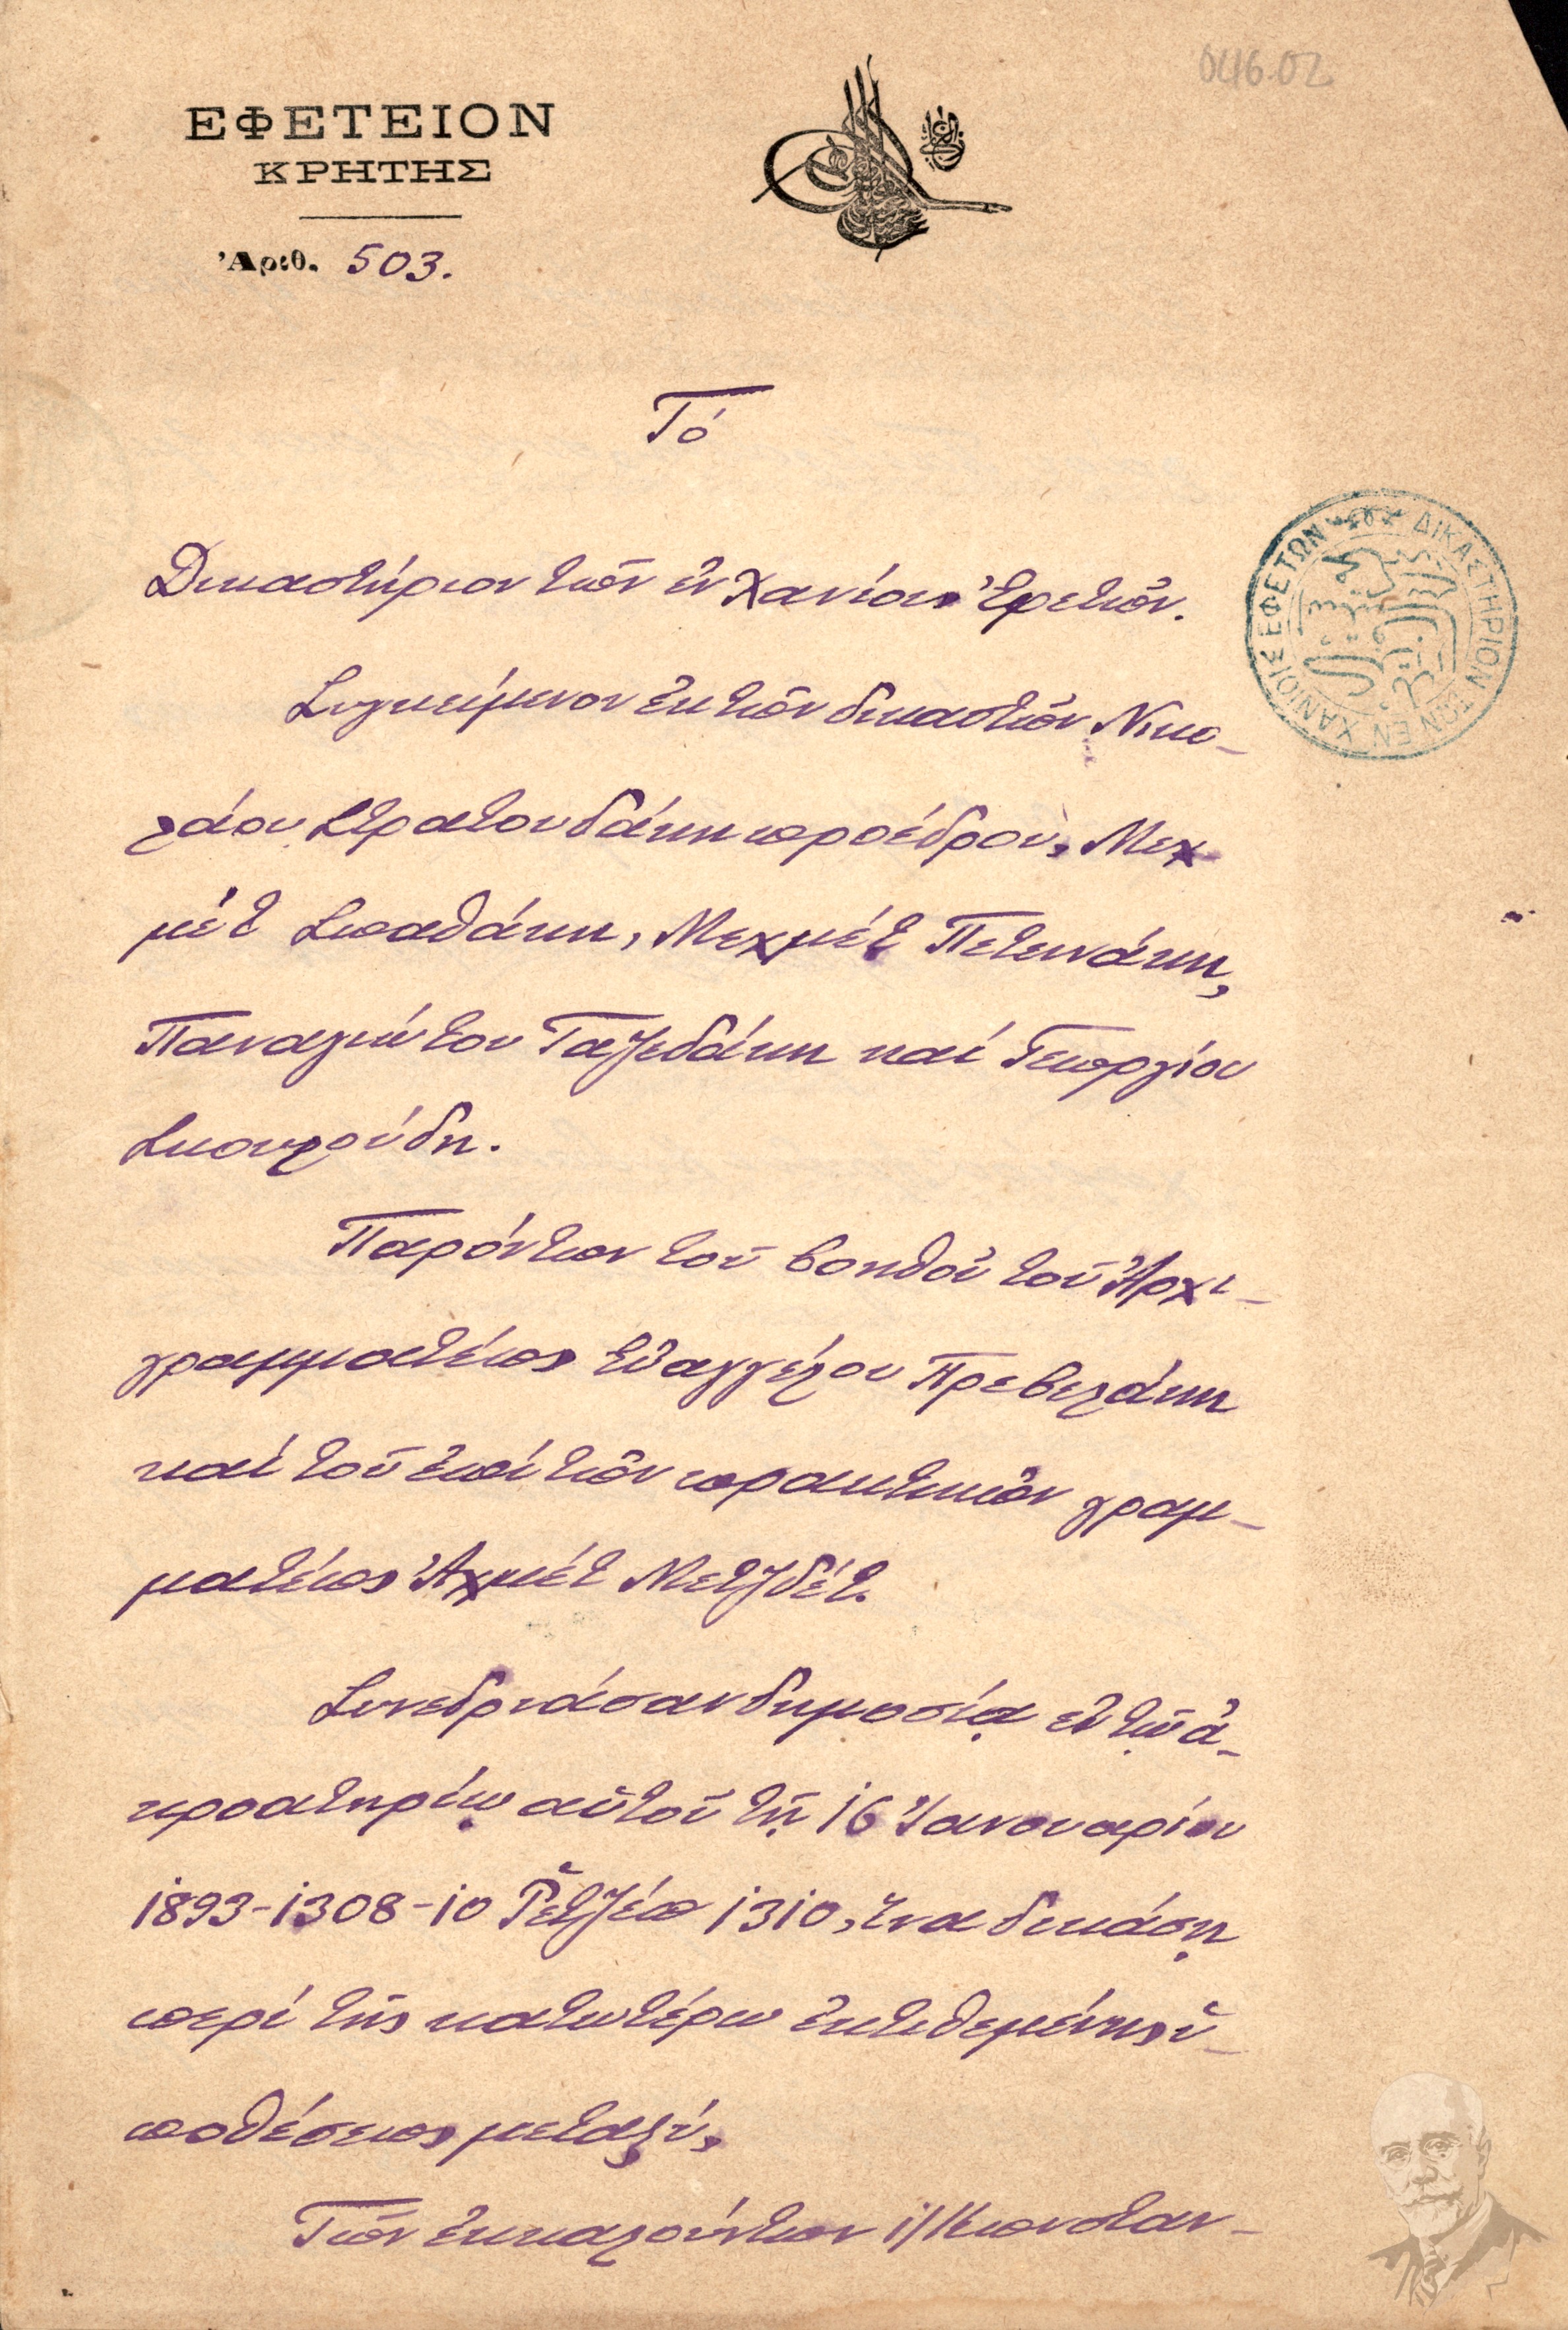 046.02
ΕΦΕΤΕΙΟΝ
ΚΡΗΤΗΣ
Ἀριθ. 503.
Τό
Δικαστήριον τῶν ἐν Χανίοις Ἐφετῶν.
ΔΙΚΑΣΤΗΡΙΟΝ ΤΩΝ ΕΝ ΧΑΝΙΟΙΣ ΕΦΕΤΩΝ
Συγκείμενον ἐκ τῶν δικαστῶν Νικο-
λάου Στρατουδάκη προέδρου, Μεχ
μέτ Σπαθάκη, Μεχμέτ Πετεινάκη,
Παναγιώτου Γαζεδάκη καί Γεωργίου
Σκουλούδη.
Παρόντων τοῦ βοηθοῦ τοῦ Ἀρχι-
γραμματέως Εὐαγγέλου Πρεβελάκη
καί τοῦ ἐπί τῶν πρακτικῶν γραμ-
ματέως Ἀχμέτ Μετζδέτ.
Συνεδριάσαν δημοσίᾳ ἐν τῷ ἀ-
κροατηρίῳ αὐτοῦ τῇ 16 Ἰανουαρίου
1893-1308-10 Ρετζέπ 1310, ἵνα δικάσῃ
περί τῆς κατωτέρω ἐκτιθεμένης ὑ-
ποθέσεως μεταξύ,
Τῶν ἐκκαλούντων 1/ Κωνσταν-